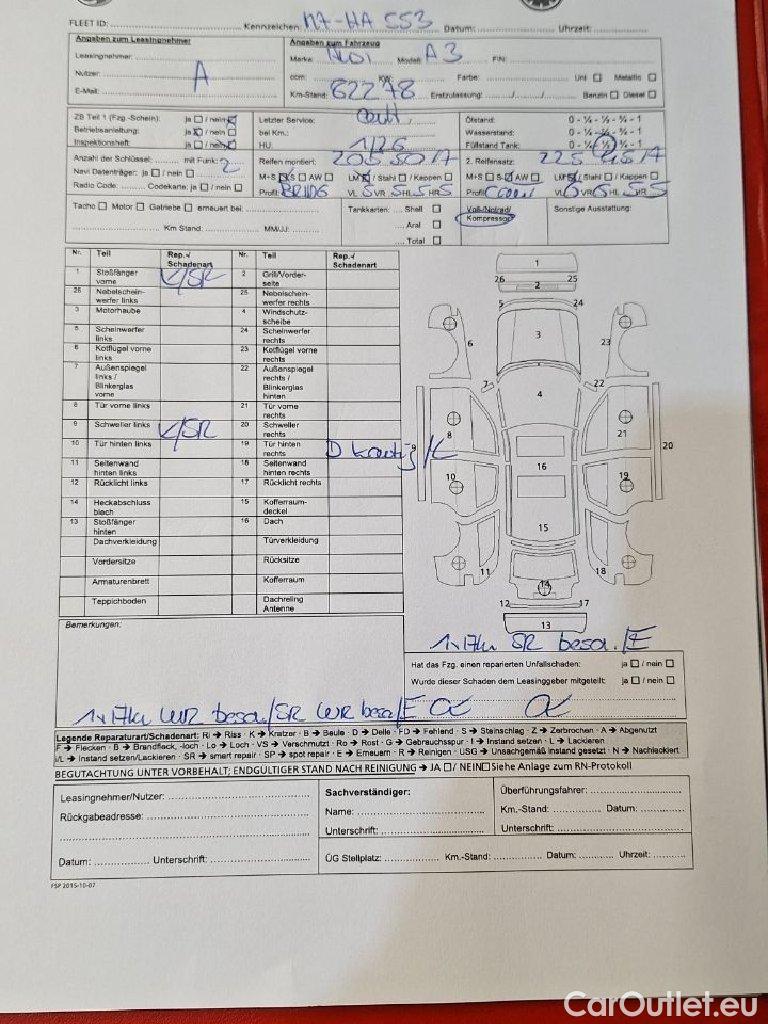 FLEET ID: Kennzeichen: MA-HA 553 Datum: Uhrzeit:
Angaben zum Leasingnehmer Angaben zum Fahrzeug
Leasingnehmer: Marke: AUDI Modell: A3 FIN:
Nutzer: A ccm: KW: Farbe: Uni Metallic
E-Mail: Km-Stand: 82278 Erstzulassung: Benzin Diesel
ZB Teil 1 (Fzg.-Schein): ja / nein Letzter Service: Ölstand: 0 - ¼ - ½ - ¾ - 1
Betriebsanleitung: ja / nein bei Km.: Wasserstand: 0 - ¼ - ½ - ¾ - 1
Inspektionsheft: ja / nein HU: 1/26 Füllstand Tank: 0 - ¼ - ½ - ¾ - 1
Anzahl der Schlüssel: mit Funk: 2 Reifen montiert: 205 50 17 2. Reifensatz: 225 45 17
Navi Datenträger: ja / nein M+S S AW LM / Stahl / Kappen M+S S AW LM / Stahl / Kappen
Radio Code: Codekarte: ja / nein Profil: BRIDG VL 5 VR 5 HL 5 HR 5 Profil: VL VR HL 5 HR 5
Tacho Motor Getriebe erneuert bei: Tankkarten: Shell Voll-/Notrad/ Sonstige Ausstattung:
Kompressor
Km Stand: MM/JJ: Aral
Total
Nr. Teil Rep.-/ Schadenart Nr. Teil Rep.-/ Schadenart
1 Stoßfänger vorne K/SR 2 Grill/Vorder- seite
26 Nebelschein- werfer links 25 Nebelschein- werfer rechts
3 Motorhaube 4 Windschutz- scheibe
5 Scheinwerfer links 24 Scheinwerfer rechts
6 Kotflügel vorne links 23 Kotflügel vorne rechts
7 Außenspiegel links / Blinkerglas vorne 22 Außenspiegel rechts / Blinkerglas hinten
8 Tür vorne links 21 Tür vorne rechts
9 Schweller links K/SR 20 Schweller rechts
10 Tür hinten links 19 Tür hinten rechts D /L
11 Seitenwand hinten links 18 Seitenwand hinten rechts
12 Rücklicht links 17 Rücklicht rechts
14 Heckabschluss blech 15 Kofferraum- deckel
13 Stoßfänger hinten 16 Dach
Dachverkleidung Türverkleidung
Vordersitze Rücksitze
Armaturenbrett Kofferraum
Teppichboden Dachreling Antenne
1
26 25
2
5 24
3
6 23
7 22
4
8 9 21 20
10 16 19
15
11 18
14
12 17
13
Bemerkungen:
1x17" SR besch./E
Hat das Fzg. einen reparierten Unfallschaden: ja / nein
Wurde dieser Schaden dem Leasinggeber mitgeteilt: ja / nein
1x17" WR besch./SR WR besch/E
Legende Reparaturart/Schadenart: Ri → Riss - K → Kratzer - B → Beule - D → Delle - FD → Fehlend - S → Steinschlag - Z → Zerbrochen - A → Abgenutzt
F → Flecken - B → Brandfleck, -loch - Lo → Loch - VS → Verschmutzt - Ro → Rost - G → Gebrauchsspur - I → Instand setzen - L → Lackieren
I/L → Instand setzen/Lackieren - SR → smart repair - SP → spot repair - E → Erneuern - R → Reinigen - USG → Unsachgemäß instand gesetzt - N → Nachlackiert
BEGUTACHTUNG UNTER VORBEHALT; ENDGÜLTIGER STAND NACH REINIGUNG → JA / NEIN Siehe Anlage zum RN-Protokoll
Leasingnehmer/Nutzer: Sachverständiger: Überführungsfahrer:
Rückgabeadresse: Name: Km.-Stand: Datum:
Unterschrift: Unterschrift:
Datum: Unterschrift: ÜG Stellplatz: Km.-Stand: Datum: Uhrzeit:
FSP 2015-10-07
CarOutlet.eu